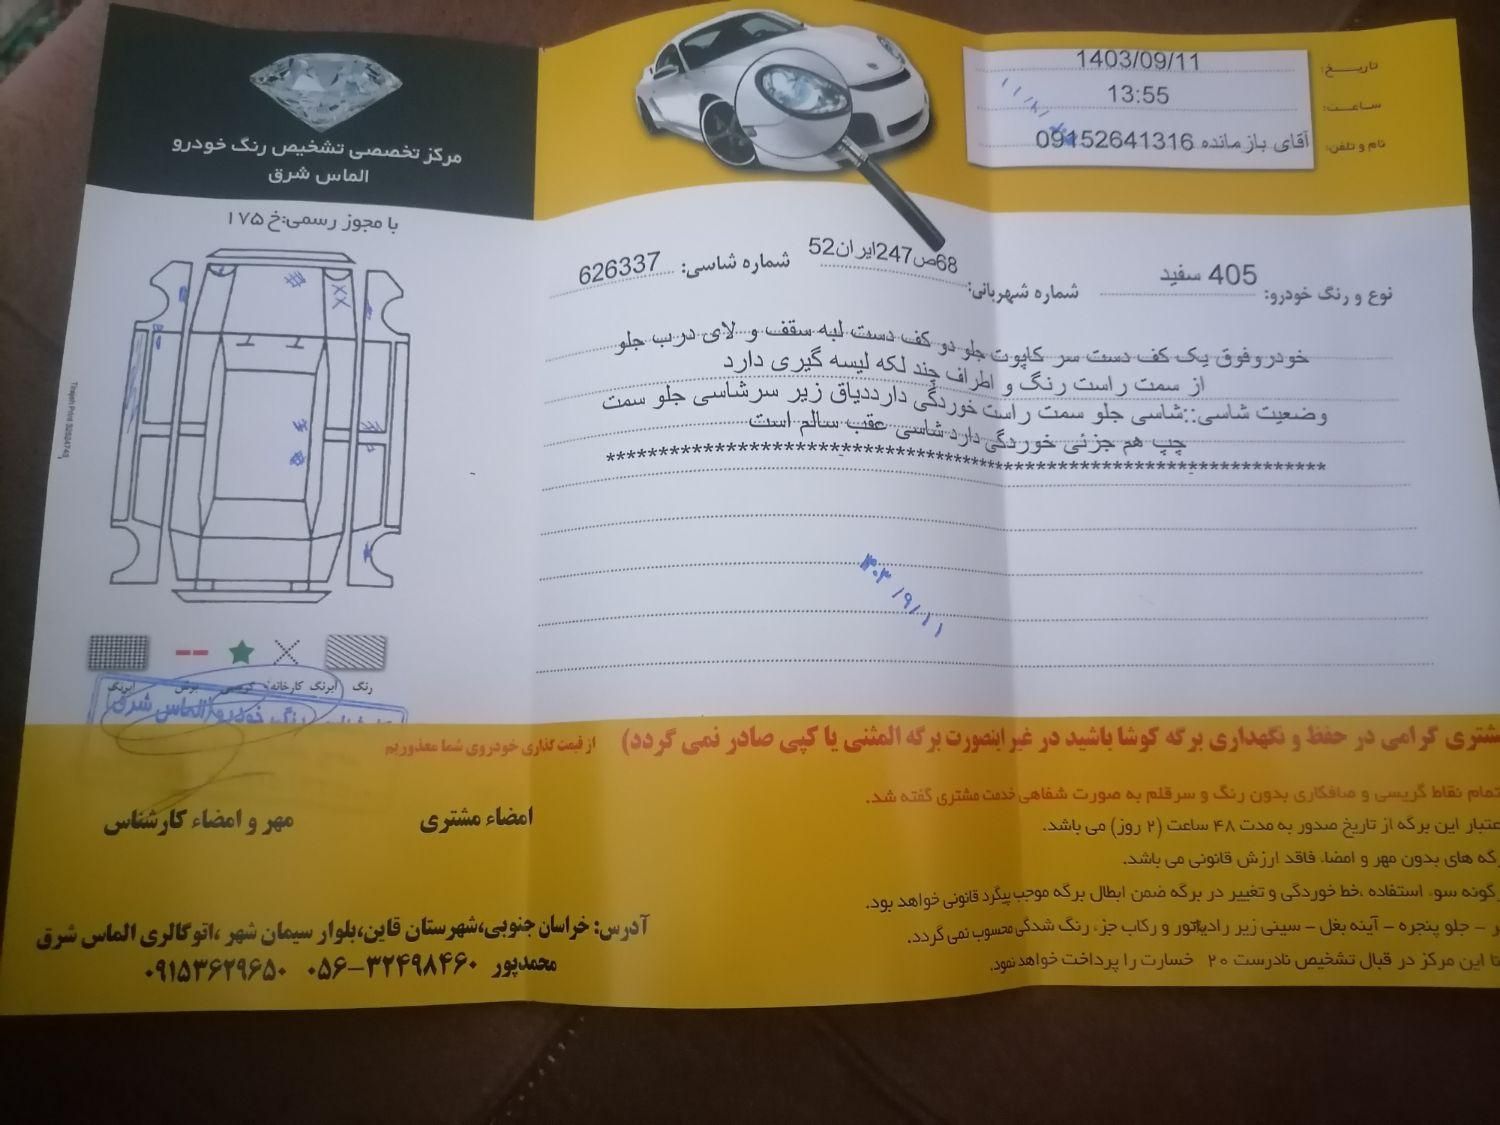 مرکز تخصصی تشخیص رنگ خودرو
الماس شرق
تاریـخ: 1403/09/11
ساعـت: 13:55
نام و تلفن: آقای بازمانده 09152641316
با مجوز رسمی:خ ۱۷۵
نوع و رنگ خودرو: 405 سفید
شماره شهربانی: 68ص247ایران52
شماره شاسی: 626337
خودروفوق یک کف دست سر کاپوت جلو دو کف دست لبه سقف و لای درب جلو
از سمت راست رنگ و اطراف چند لکه لیسه گیری دارد
وضعیت شاسی::شاسی جلو سمت راست خوردگی دارددیاق زیر سرشاسی جلو سمت
چپ هم جزئی خوردگی دارد شاسی عقب سالم است
۱۴۰۳/۹/۱۱
رنگ
آبرنگ کارخانه
مشتری گرامی در حفظ و نگهداری برگه کوشا باشید در غیر اینصورت برگه المثنی یا کپی صادر نمی گردد)
از قیمت گذاری خودروی شما معذوریم
تمام نقاط گریسی و صافکاری بدون رنگ و سرقلم به صورت شفاهی خدمت مشتری گفته شد.
عتبار این برگه از تاریخ صدور به مدت ۴۸ ساعت (۲ روز) می باشد.
گه های بدون مهر و امضاء فاقد ارزش قانونی می باشد.
رگونه سوء استفاده ،خط خوردگی و تغییر در برگه ضمن ابطال برگه موجب پیگرد قانونی خواهد بود.
ر - جلو پنجره - آینه بغل - سینی زیر رادیاتور و رکاب جزء رنگ شدگی محسوب نمی گردد.
تا این مرکز در قبال تشخیص نادرست ۲۰ خسارت را پرداخت خواهد نمود.
امضاء مشتری
مهر و امضاء کارشناس
آدرس: خراسان جنوبی،شهرستان قاین،بلوار سیمان شهر ،اتوگالری الماس شرق
محمدپور ۳۲۴۹۸۴۶۰-۰۵۶ ۰۹۱۵۳۶۲۹۶۵۰